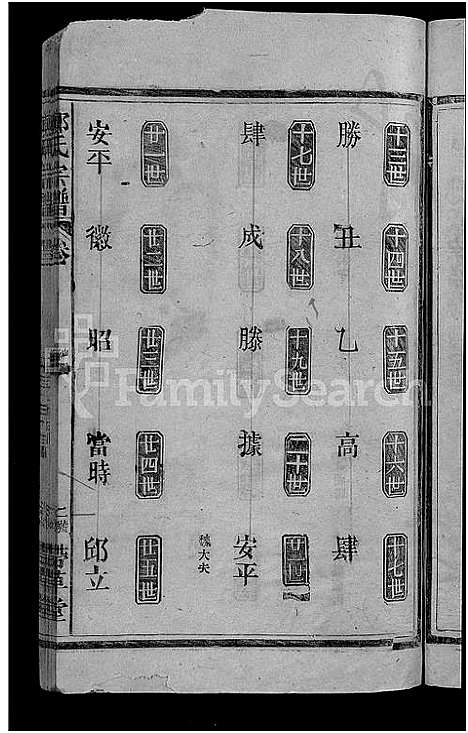 十三世 十四世 十五世 十六世 十七世
勝 丑 乙 高 肆
十七世 十八世 十九世 二十世 廿一世
肆 成 滕 據 安平
魏大夫
廿一世 廿二世 廿三世 廿四世 廿五世
安平 徽 昭 當時 邱立
氏宗譜 卷
堂
FamilySearch